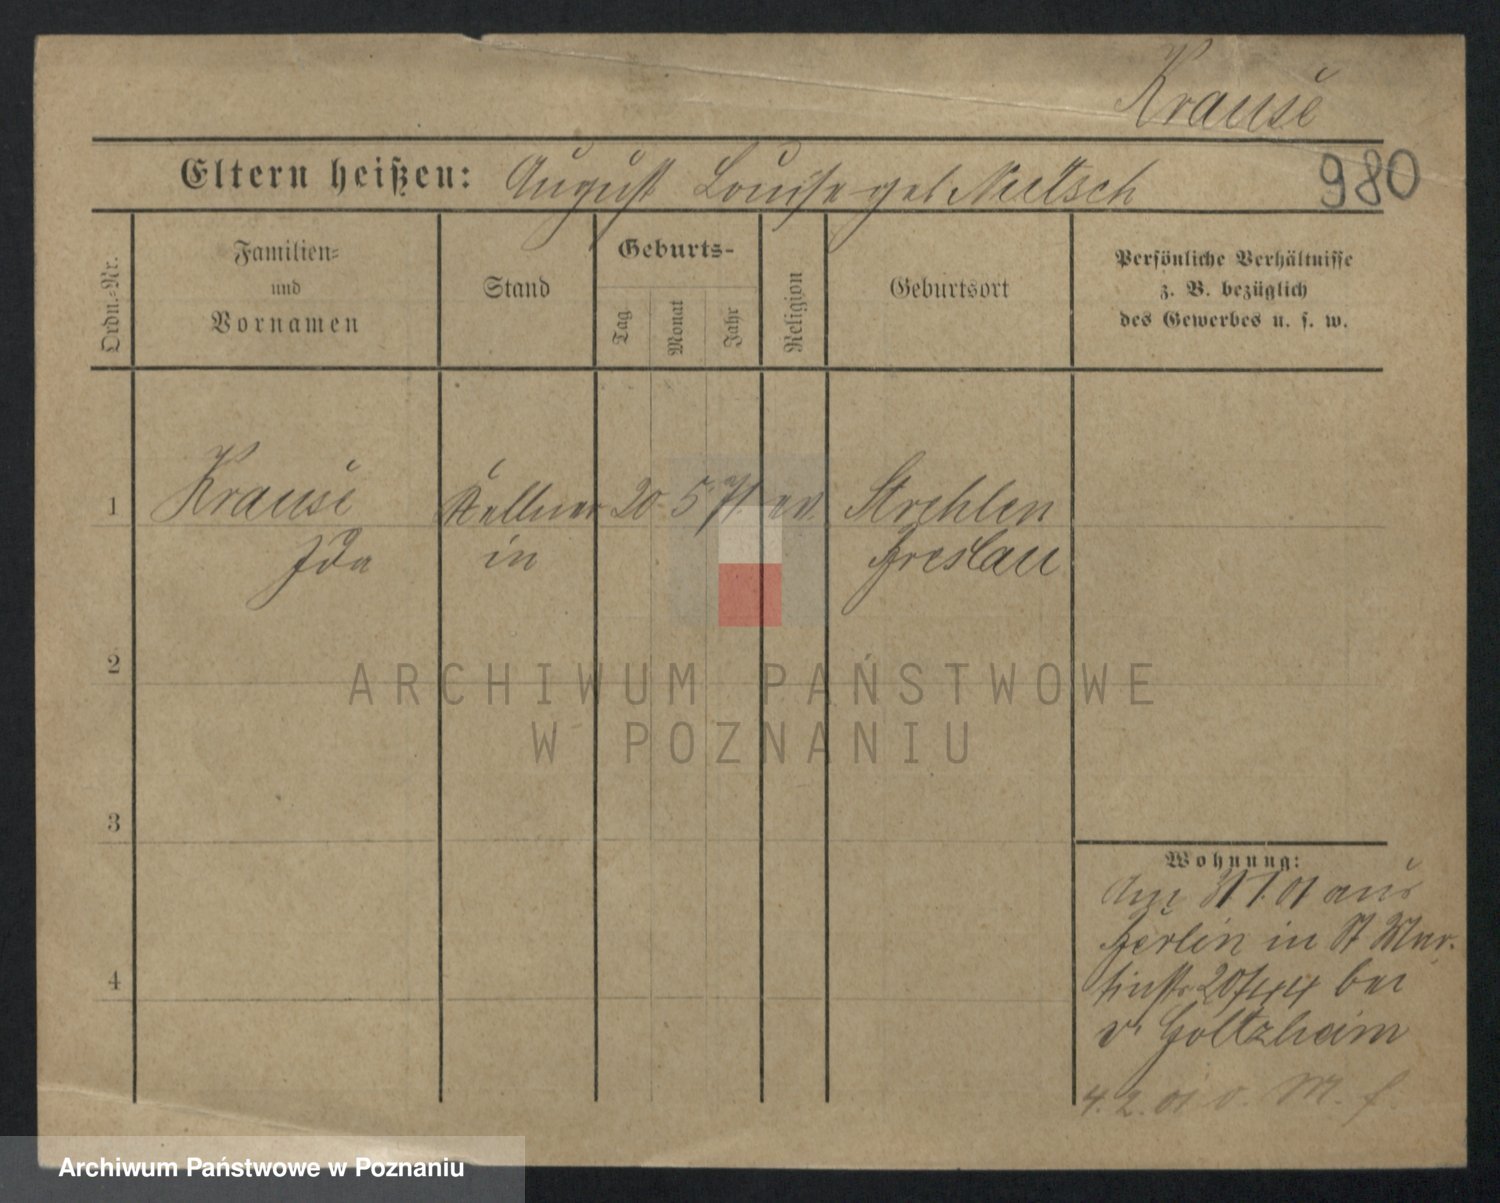 Krause
Eltern heißen: August Louise geb Nietsch
980
Ordn.-Nr.
Familien-
und
Vornamen
Stand
Geburts-
Tag
Monat
Jahr
Religion
Geburtsort
Persönliche Verhältnisse
z. B. bezüglich
des Gewerbes u. s. w.
1 Krause Kellner 20 5 71 ev. Strehlen
Ida in Breslau
2
3
4
Wohnung:
Am 31 1. 01 aus
Berlin in St Mar-
tinstr 20/44 bei
v Goltzheim
4. 2. 01 v. M. f.
ARCHIWUM PAŃSTWOWE
W POZNANIU
Archiwum Państwowe w Poznaniu